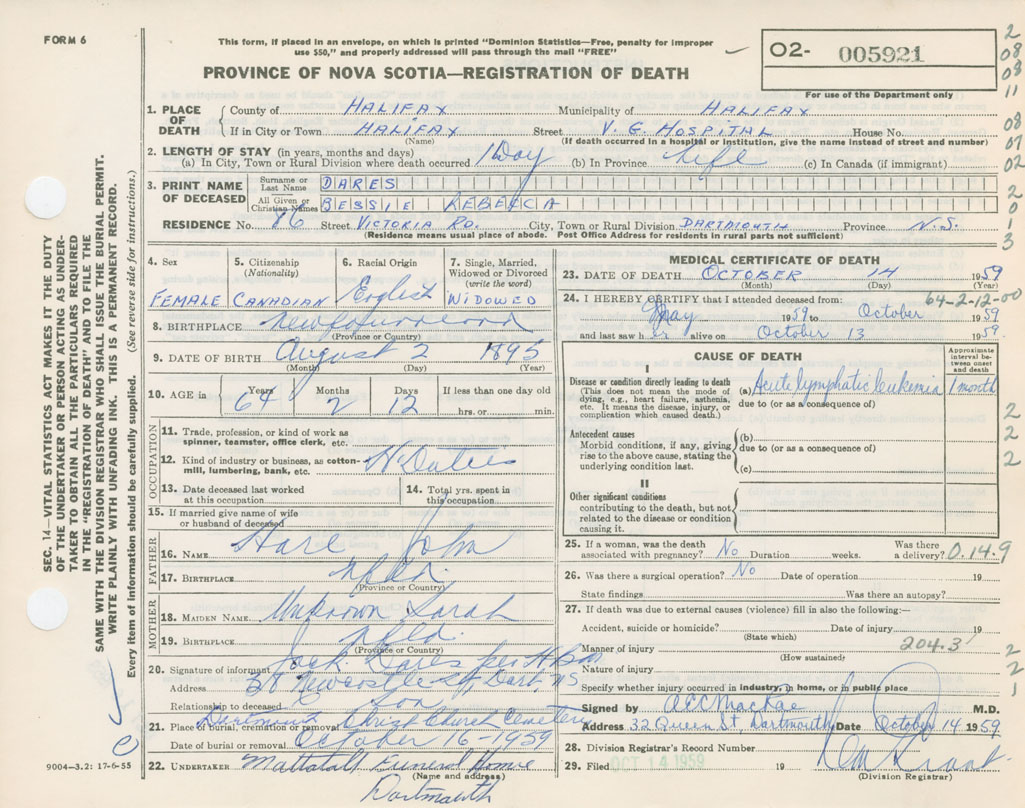 FORM 6
This form, if placed in an envelope, on which is printed "Dominion Statistics—Free, penalty for improper
use $50," and properly addressed will pass through the mail "FREE"
O2- 005921
For use of the Department only
PROVINCE OF NOVA SCOTIA—REGISTRATION OF DEATH
2
08
08
11
08
07
02
2
0
1
3
1. PLACE OF DEATH County of HALIFAX Municipality of HALIFAX
If in City or Town HALIFAX Street V. G. HOSPITAL House No.
(Name) (If death occurred in a hospital or institution, give the name instead of street and number)
2. LENGTH OF STAY (in years, months and days)
(a) In City, Town or Rural Division where death occurred 1 Day (b) In Province Life (c) In Canada (if immigrant)
3. PRINT NAME OF DECEASED Surname or Last Name DARES
All Given or Christian Names BESSIE REBECCA
RESIDENCE No. 86 Street VICTORIA RD. City, Town or Rural Division DARTMOUTH Province N.S.
(Residence means usual place of abode. Post Office Address for residents in rural parts not sufficient)
4. Sex FEMALE
5. Citizenship (Nationality) CANADIAN
6. Racial Origin English
7. Single, Married, Widowed or Divorced (write the word) WIDOWED
8. BIRTHPLACE Newfoundland
(Province or Country)
9. DATE OF BIRTH August 2 1895
(Month) (Day) (Year)
10. AGE in Years 64 Months 2 Days 12 If less than one day old
hrs. or min.
OCCUPATION
11. Trade, profession, or kind of work as
spinner, teamster, office clerk, etc.
12. Kind of industry or business, as cotton-
mill, lumbering, bank, etc. H. Duties
13. Date deceased last worked
at this occupation.
14. Total yrs. spent in
this occupation
15. If married give name of wife
or husband of deceased
FATHER
16. NAME Hare John
17. BIRTHPLACE Nfld.
(Province or Country)
MOTHER
18. MAIDEN NAME Unknown Sarah
19. BIRTHPLACE Nfld.
(Province or Country)
20. Signature of informant Jack Dares per
Address 38 Newcastle St, Dart. NS
Relationship to deceased Son
21. Place of burial, cremation or removal Dartmouth Christ Church Cemetery
Date of burial or removal October 16-1959
22. UNDERTAKER Mattatall Funeral Home
(Name and address)
Dartmouth
MEDICAL CERTIFICATE OF DEATH
23. DATE OF DEATH OCTOBER 14 1959
(Month) (Day) (Year)
64-2-12-00
24. I HEREBY CERTIFY that I attended deceased from:
May 1959 to October 1959
and last saw her alive on October 13 1959.
CAUSE OF DEATH
Approximate
interval be-
tween onset
and death
I
Disease or condition directly leading to death
(This does not mean the mode of
dying, e.g., heart failure, asthenia,
etc. It means the disease, injury, or
complication which caused death.)
(a) Acute lymphatic leukemia 1 month
due to (or as a consequence of)
Antecedent causes
Morbid conditions, if any, giving
rise to the above cause, stating the
underlying condition last.
(b)
due to (or as a consequence of)
(c)
II
Other significant conditions
contributing to the death, but not
related to the disease or condition
causing it.
2
2
2
25. If a woman, was the death
associated with pregnancy? No Duration weeks. Was there
a delivery? 0.14.9
26. Was there a surgical operation? No Date of operation 19
State findings Was there an autopsy?
27. If death was due to external causes (violence) fill in also the following:—
Accident, suicide or homicide? Date of injury 19
(State which) 204.3
Manner of injury
(How sustained)
Nature of injury
Specify whether injury occurred in industry, in home, or in public place
2
2
1
Signed by MacKae M.D.
Address 32 Queen St, Dartmouth Date October 14 1959
28. Division Registrar's Record Number
29. Filed OCT 14 1959 19
(Division Registrar)
SEC. 14—VITAL STATISTICS ACT MAKES IT THE DUTY
OF THE UNDERTAKER OR PERSON ACTING AS UNDER-
TAKER TO OBTAIN ALL THE PARTICULARS REQUIRED
IN THE "REGISTRATION OF DEATH" AND TO FILE THE
SAME WITH THE DIVISION REGISTRAR WHO SHALL ISSUE THE BURIAL PERMIT.
WRITE PLAINLY WITH UNFADING INK. THIS IS A PERMANENT RECORD.
Every item of information should be carefully supplied. (See reverse side for instructions.)
9004—3.2: 17-6-55